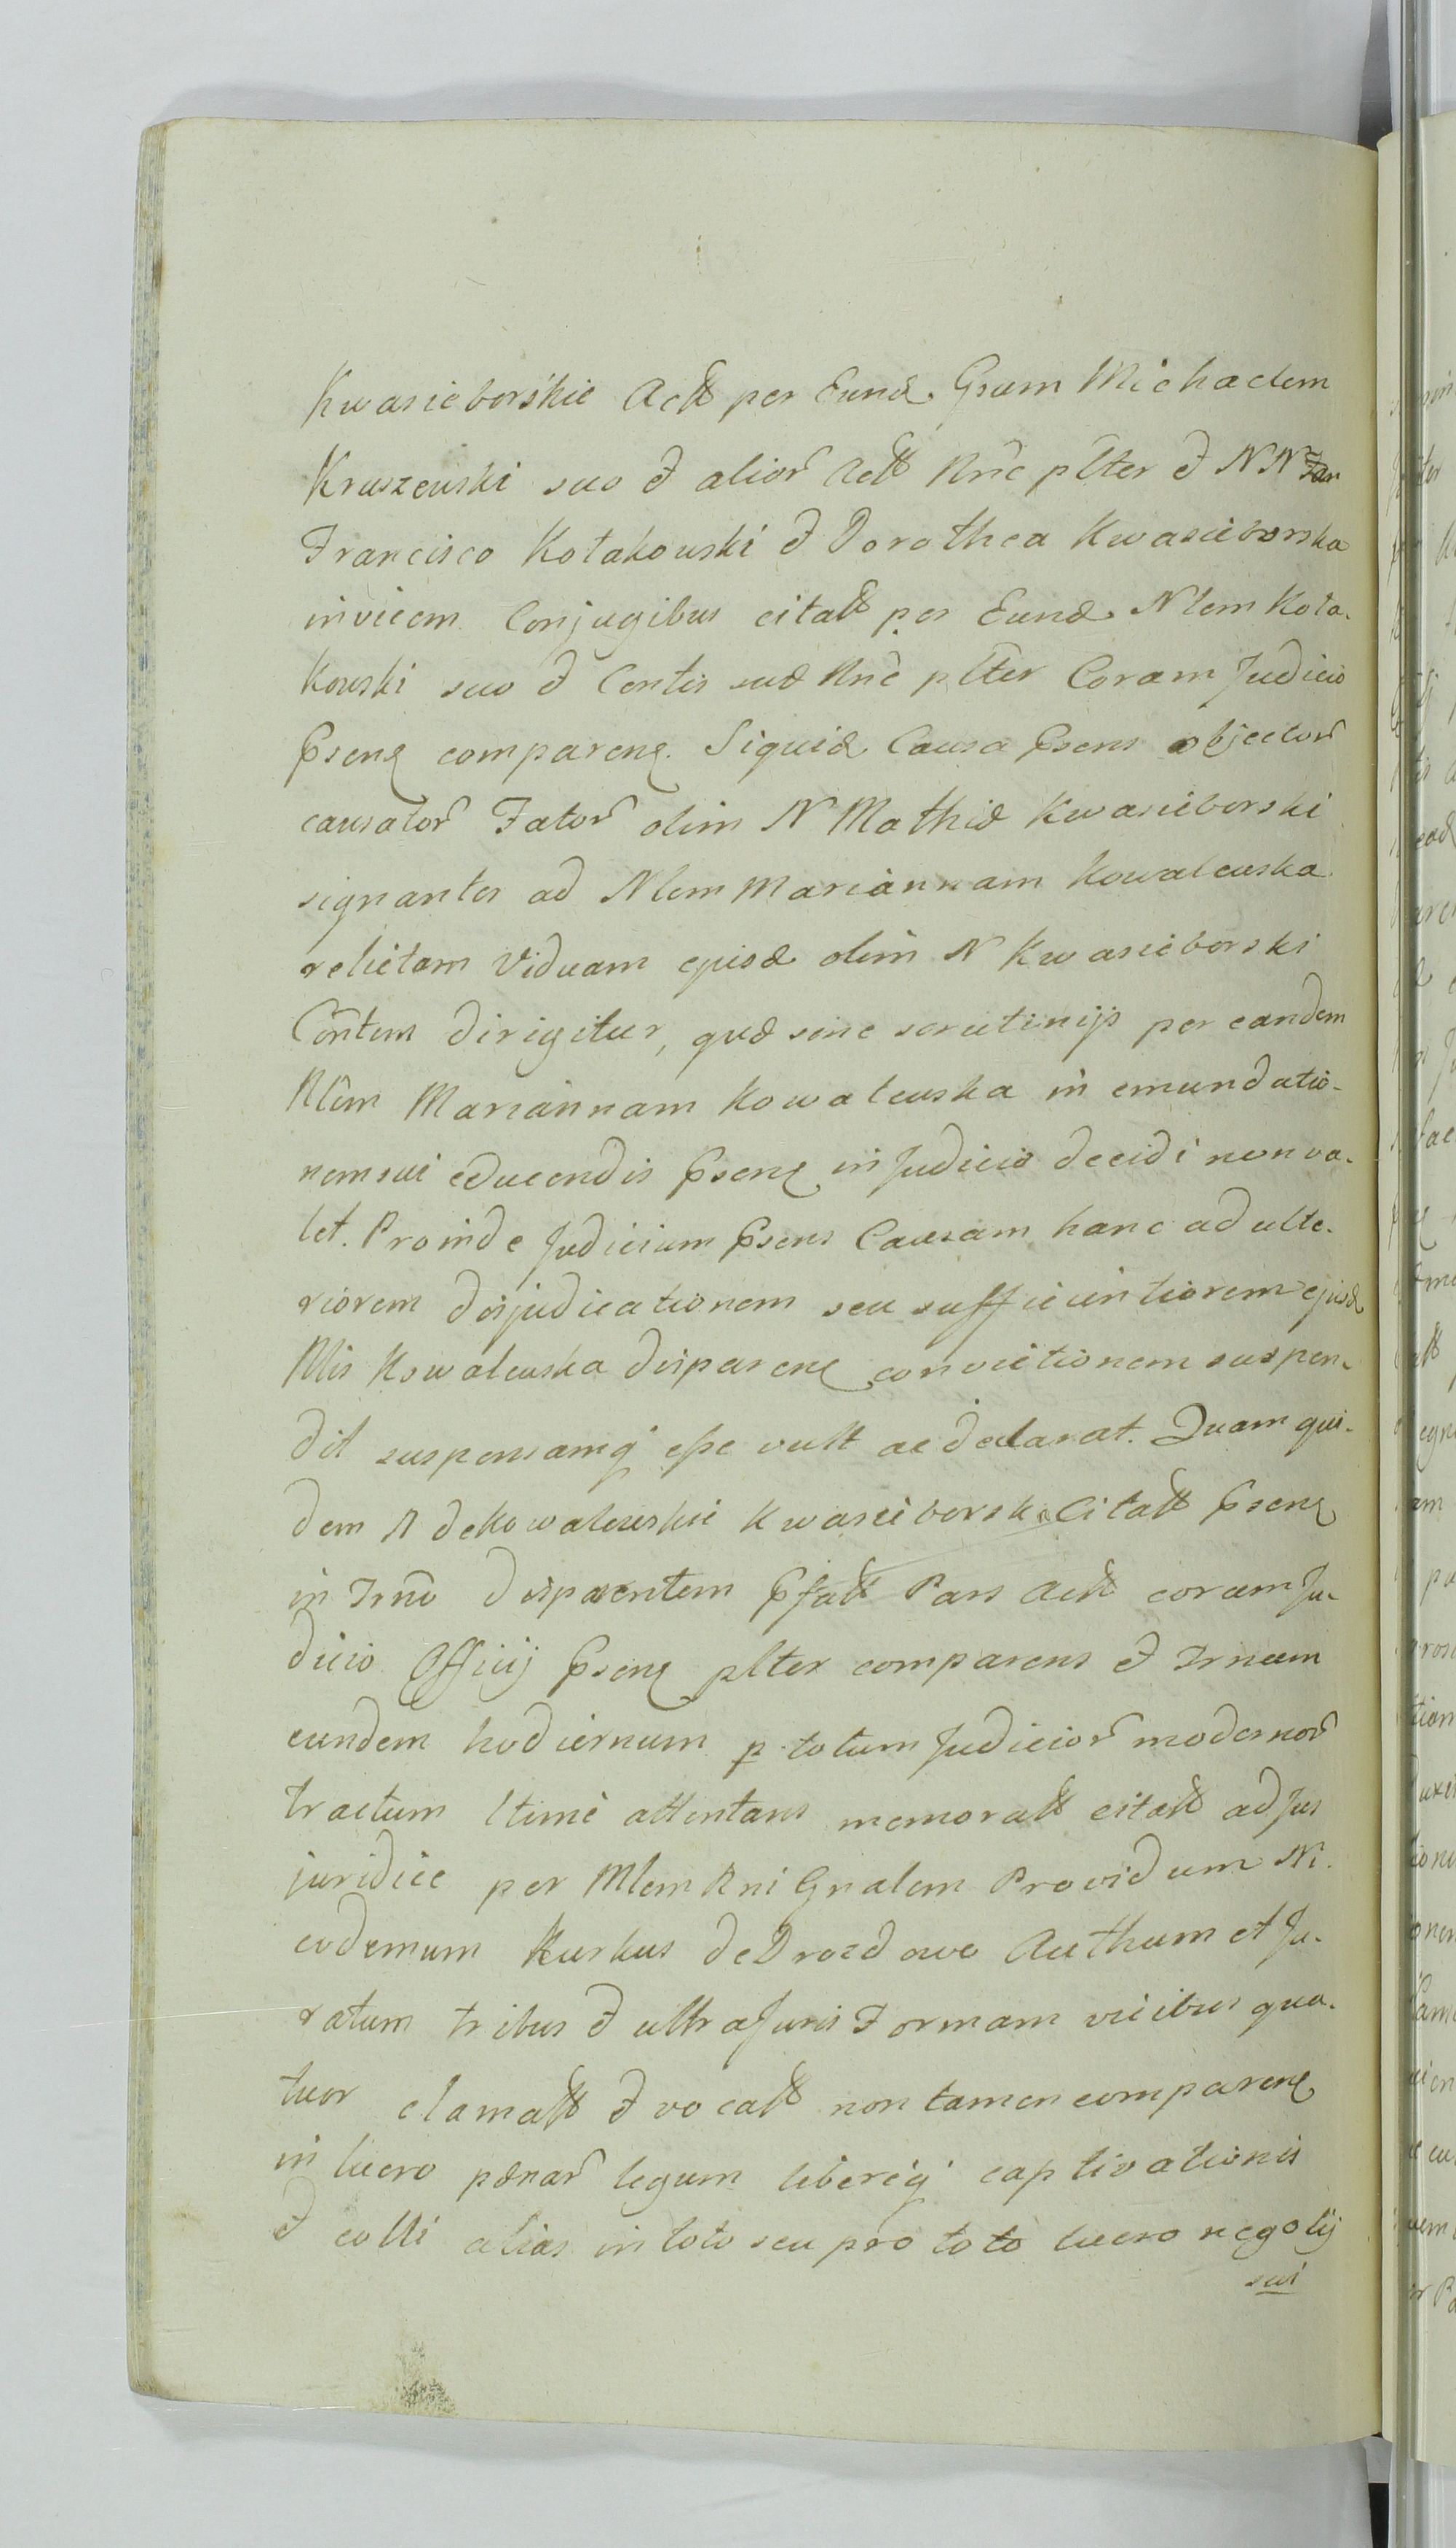 Kwasieborskie Actt per Eund. Gsum Michaelem
Kruszewski suo & alior Actt Nne plter & N N
Francisco Kołakowski & Dorothea Kwasieborska
invicem Conjugibus citatt per Eund. Nlem Koła-
kowski suo & Contis suæ Nne plter Coram Judicio
Psene comparen. Siquid. Causa Psens objector
causator Fator olim N Mathiæ Kwasieborski
signanter ad Nlem Mariannam Kowalewska
relictam Viduam ejusd. olim N Kwasieborski
Contem dirigitur, quæ sine scrutinijs per eandem
Nlem Mariannam Kowalewska in emundatio-
nem sui educendis Psene in Judicio decidi non va-
let. Proinde Judicium Psens Causam hanc ad ulte-
riorem disjudicationem seu sufficientiorem ejusd
Nlis Kowalewska disparen convictionem suspen-
dit suspensamq esse vult ac declarat. Quam qui-
dem N de Kowalewskie Kwasieborska Citatt Psene
in Trno disparentem Pfatt Pars Actt coram Ju-
dicio Officij Psene plter comparens & Trnum
eundem hodiernum p totum Judicior modernor
tractum ltime attentans memoratt citatt ad Jus
juridice per Mlem Rni Gnalem Providum Ni-
codemum Kurkus de Drozdowo Authum et Ju-
ratum tribus & ultra Juris Formam vicibus qua-
tuor clamatt & vocatt non tamen comparen
in lucro pænar legum libereq captivationis
& colli alias in toto seu pro toto lucro negotij
sui